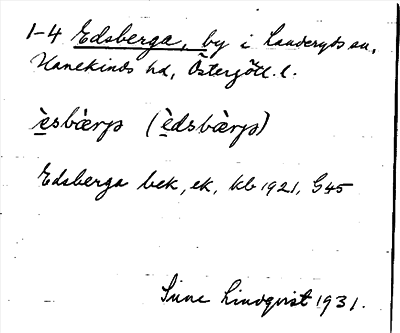 1-4 Edsberga, by i Landeryds sn,
Hanekinds hd, Östergötl. l.
èsbàrjs (èdsbàrjs)
Edsberga bek, ek, kb 1921, G45
Sune Lindqvist 1931.